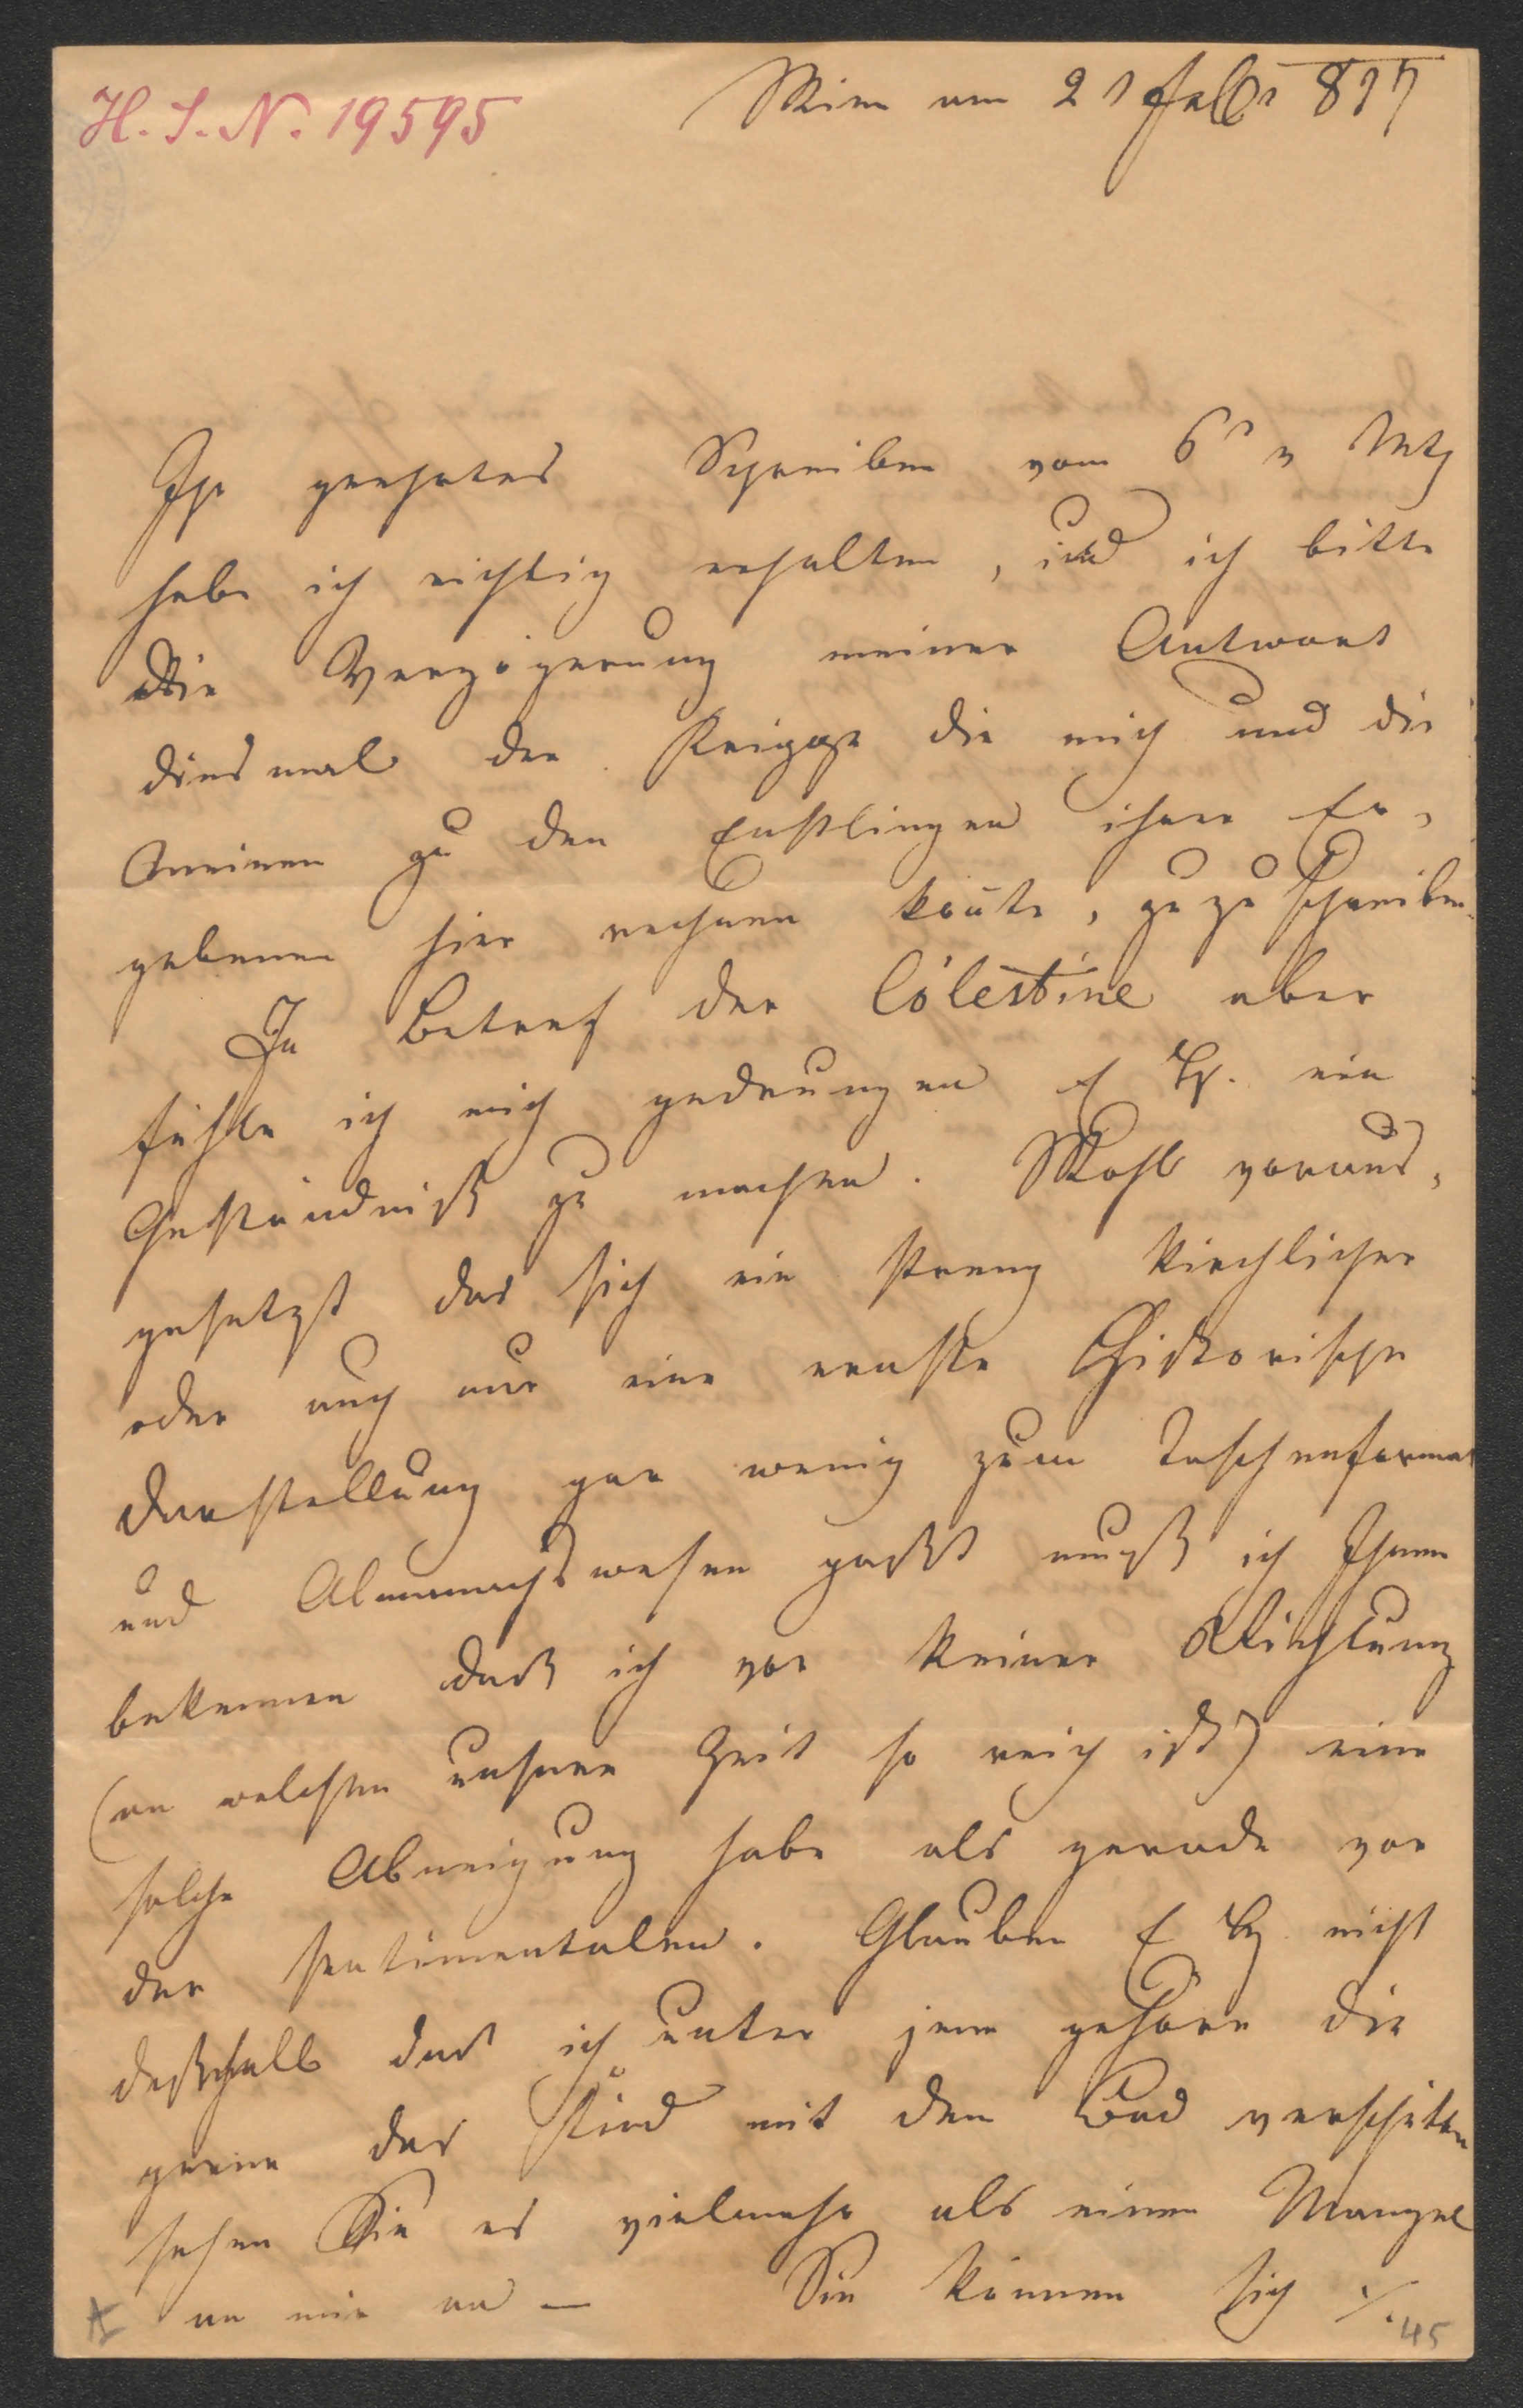 H. I. N. 19595
Wien am 21 Febr 817
Ihr geehrtes Schreiben vom 6t v Mts
habe ich richtig erhalten, und ich bitte
die Verzögerung meiner Antwort
diesmal der Grippe die mich und die
Meinen zu den Erstlingen ihrer Er¬
gebenen hier rechnen konte, zu zu schreiben.
In Betref der Cölestine aber
fühle ich mich gedrungen E W. ein
Geständniß zu machen. Wohl voraus¬
gesetzt das sich ein streng kirchlicher
oder auch nur eine ernste Historische
darstellung gar wenig zum Taschenformat
und Almanachswesen paßt muß ich Ihnen
bekennen daß ich vor keiner Richtung
(an welchen unsere Zeit so reich ist) eine
solche Abneigung habe als gerade vor
der sentimentalen. Glauben E W nicht
deßhalb das ich unter jene gehöre die
gerne das Kind mit dem Bad verschitten
sehen Sie es vielmehr als einen Mangel
an mir an — Sie können sich ./.
45